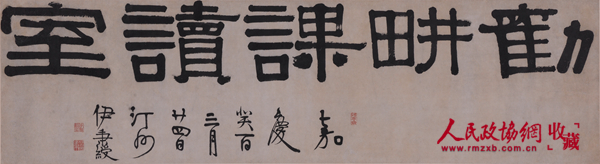 勸畊課讀室
嘉慶癸酉三月廿四日汀州伊秉綬
人民政協網「收藏」
www.rmzxb.com.cn